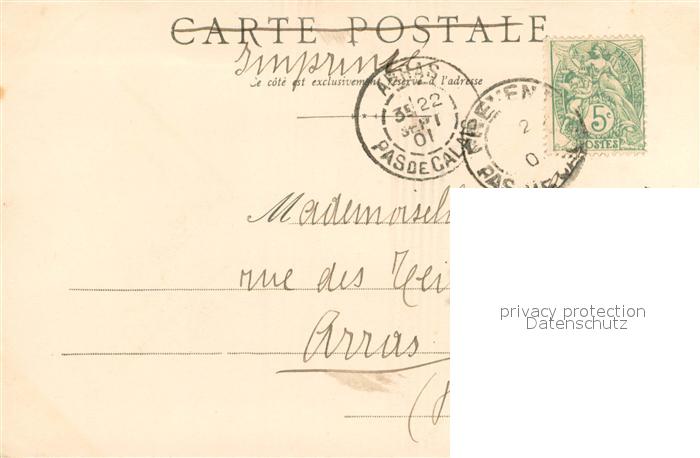 CARTE POSTALE
Imprimé
Ce côté est exclusivement réservé à l'adresse
ARRAS
3E 22
SEPT
01
PAS DE CALAIS
2
0
PAS
5c
POSTES
Mademoisel
rue des
Arras
privacy protection
Datenschutz